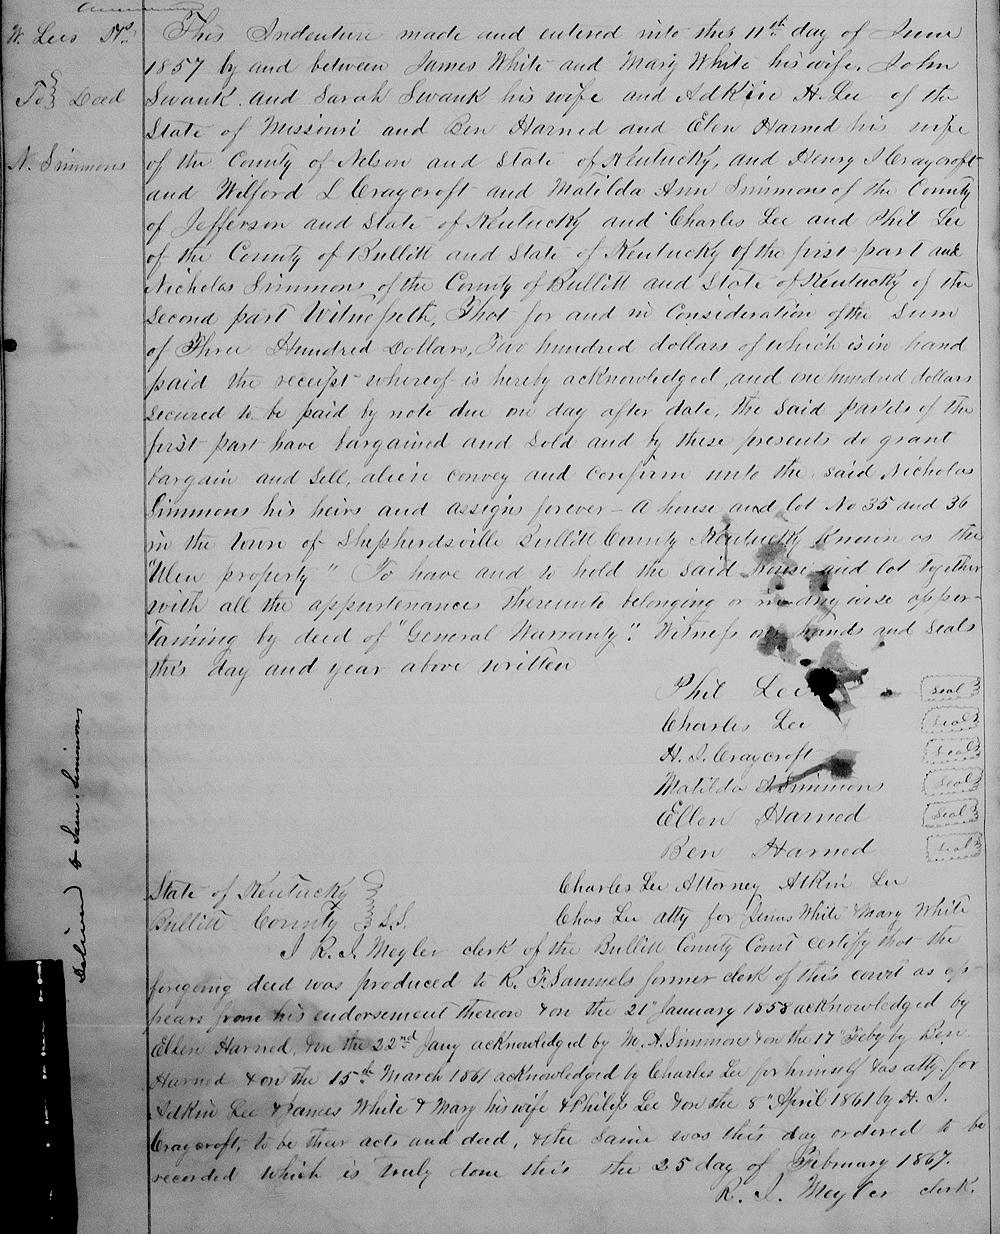 W. Lees
To } Deed
N. Simmons
This Indenture made and entered into this 11th day of June
1857 by and between James White and Mary White his wife, John
Swank and Sarah Swank his wife and Adkin H. Lee of the
State of Missouri and Ben Harned and Elen Harned his wife
of the County of Nelson and State of Kentucky, and Henry I Craycroft
and Wilford L Craycroft and Matilda Ann Simmons of the County
of Jefferson and State of Kentucky and Charles Lee and Phil Lee
of the County of Bullitt and State of Kentucky of the first part and
Nicholas Simmons of the County of Bullitt and State of Kentucky of the
second part Witnesseth, That for and in Consideration of the Sum
of Three Hundred Dollars, Two hundred dollars of which is in hand
paid the receipt whereof is hereby acknowledged, and one hundred dollars
secured to be paid by note due one day after date, the said parties of the
first part have bargained and sold and by these presents do grant
bargain and sell, alien convey and confirm unto the said Nicholas
Simmons his heirs and assigns forever - a house and lot No 35 and 36
in the town of Shepherdsville Bullitt County Kentucky known as the
property" To have and to hold the said house and lot together
with all the appurtenances thereunto belonging or in any wise apper-
taining by deed of "General Warranty". Witness our hands and seals
this day and year above written
Phil Lee seal
Charles Lee seal
H. I. Craycroft seal
Matilda A Simmons seal
Ellen Harned seal
Ben Harned seal
Charles Lee Attorney Atkin Lee
Chas Lee atty for White & Mary White
State of Kentucky }
Bullitt County } S.S.
I R. I. Meyler clerk of the Bullitt County Court certify that the
foregoing deed was produced to R. F. Samuels former clerk of this court as ap-
pears from his endorsement thereon & on the 21" January 1858 acknowledged by
Ellen Harned, & on the 22nd Jany acknowledged by M. A. Simmons & on the 17" Feby by Ben
Harned & on the 15th March 1861 acknowledged by Charles Lee for himself & as atty. for
Adkin Lee & James White & Mary his wife & Philip Lee & on the 8" April 1861 by H. I.
Craycroft, to be their acts and deed, & the same was this day ordered to be
recorded which is truly done this the 25 day of February 1867.
R. I. Meyler clerk.
Delivered to Sam. Simmons